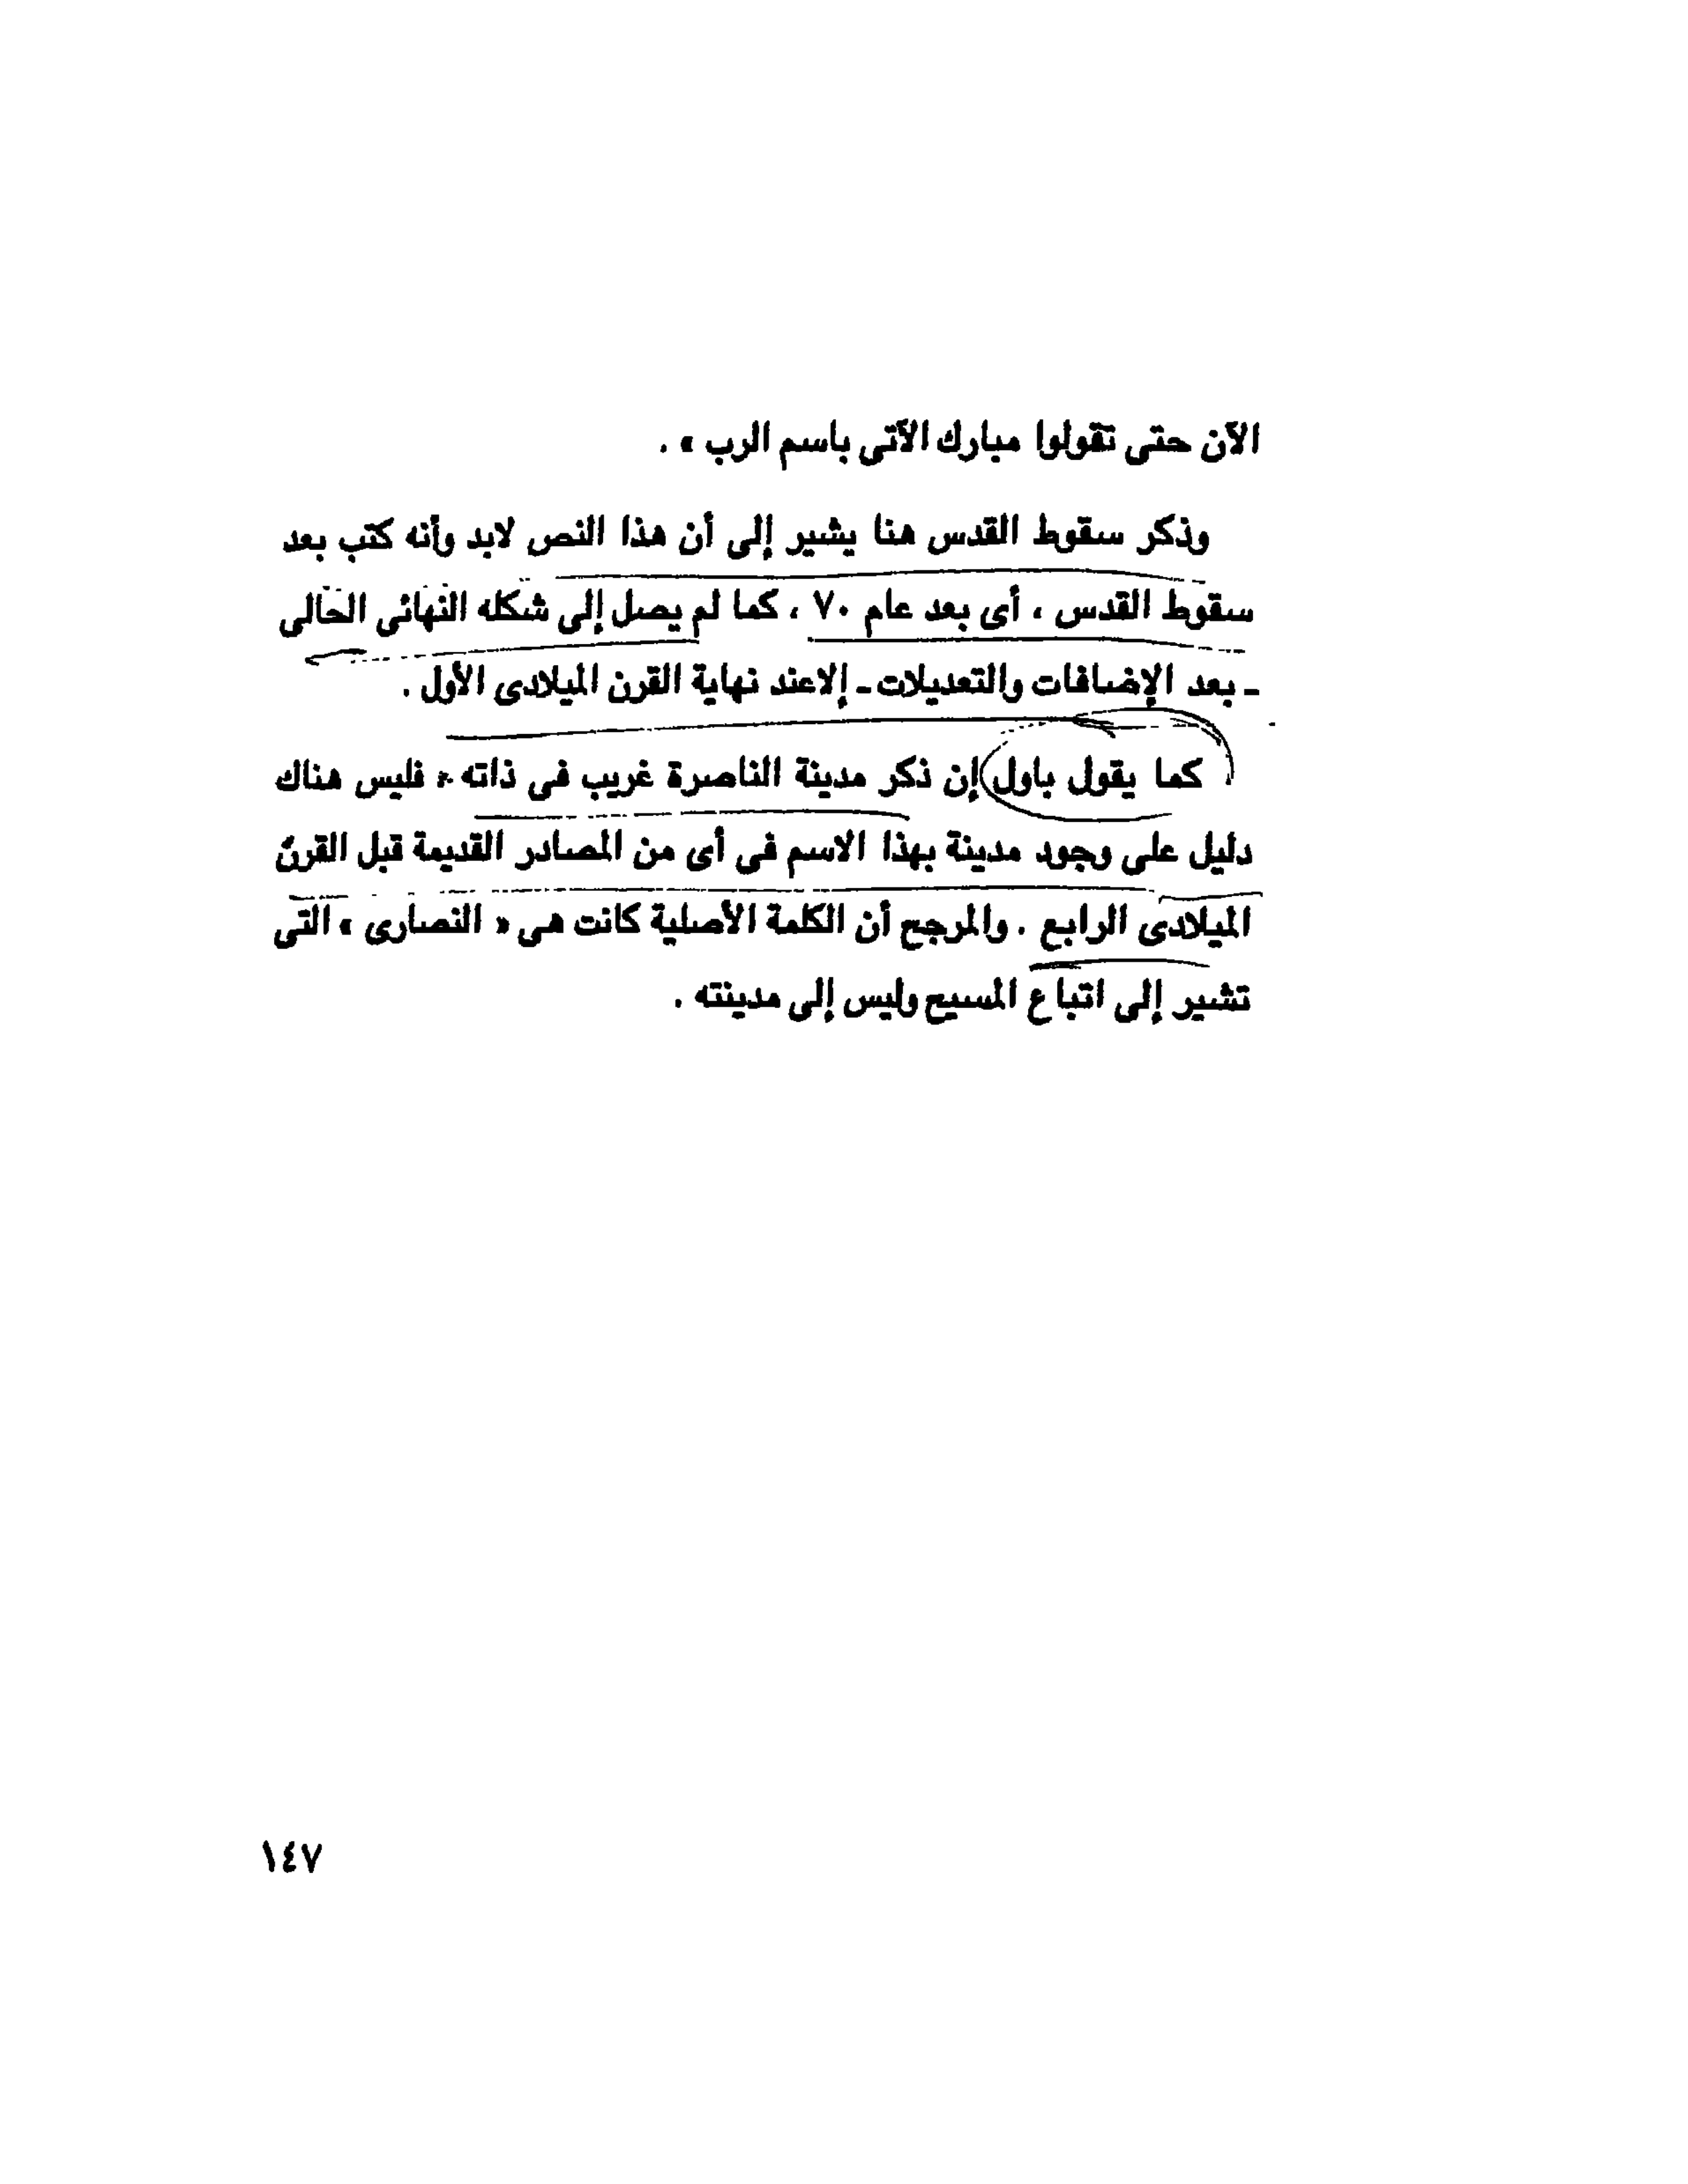 الآن حتى تقولوا مبارك الآتى باسم الرب » .
وذكر سقوط القدس هنا يشير إلى أن هذا النص لابد وأنه كتب بعد
سقوط القدس ، أى بعد عام ٧٠ ، كما لم يصل إلى شكله النهائى الحالى
ـ بعد الإضافات والتعديلات ـ إلا عند نهاية القرن الميلادى الأول .
كما يقول باول إن ذكر مدينة الناصرة غريب فى ذاته ، فليس هناك
دليل على وجود مدينة بهذا الاسم فى أى من المصادر القديمة قبل القرن
الميلادى الرابع . والمرجح أن الكلمة الأصلية كانت هى « النصارى » التى
تشير إلى اتباع المسيح وليس إلى مدينته .
١٤٧